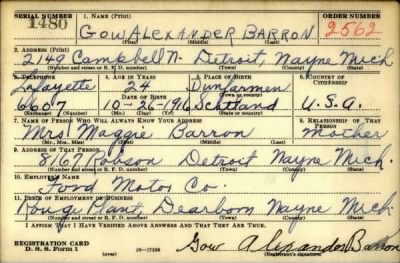 SERIAL NUMBER 1. NAME (Print) ORDER NUMBER
1480 GOW ALEXANDER BARRON 2562
(First) (Middle) (Last)
2. ADDRESS (Print)
2149 Campbell N. Detroit, Wayne Mich
(Number and street or R. F. D. number) (Town) (County) (State)
3. TELEPHONE 4. AGE IN YEARS 5. PLACE OF BIRTH 6. COUNTRY OF CITIZENSHIP
Lafayette 24 Dunfarmen
DATE OF BIRTH (Town or county)
6607 10-26-916 Scotland U.S.A.
(Exchange) (Number) (Mo.) (Day) (Yr.) (State or country)
7. NAME OF PERSON WHO WILL ALWAYS KNOW YOUR ADDRESS 8. RELATIONSHIP OF THAT PERSON
Mrs Maggie Barron Mother
(Mr., Mrs., Miss) (First) (Middle) (Last)
9. ADDRESS OF THAT PERSON
8167 Robson Detroit Wayne Mich.
(Number and street or R. F. D. number) (Town) (County) (State)
10. EMPLOYER'S NAME
Ford Motor Co.
11. PLACE OF EMPLOYMENT OR BUSINESS
Rouge Plant Dearborn Wayne Mich.
(Number and street or R. F. D. number) (Town) (County) (State)
I AFFIRM THAT I HAVE VERIFIED ABOVE ANSWERS AND THAT THEY ARE TRUE.
REGISTRATION CARD
D. S. S. Form 1 (over) Gow Alexander Barron
(Registrant's signature)